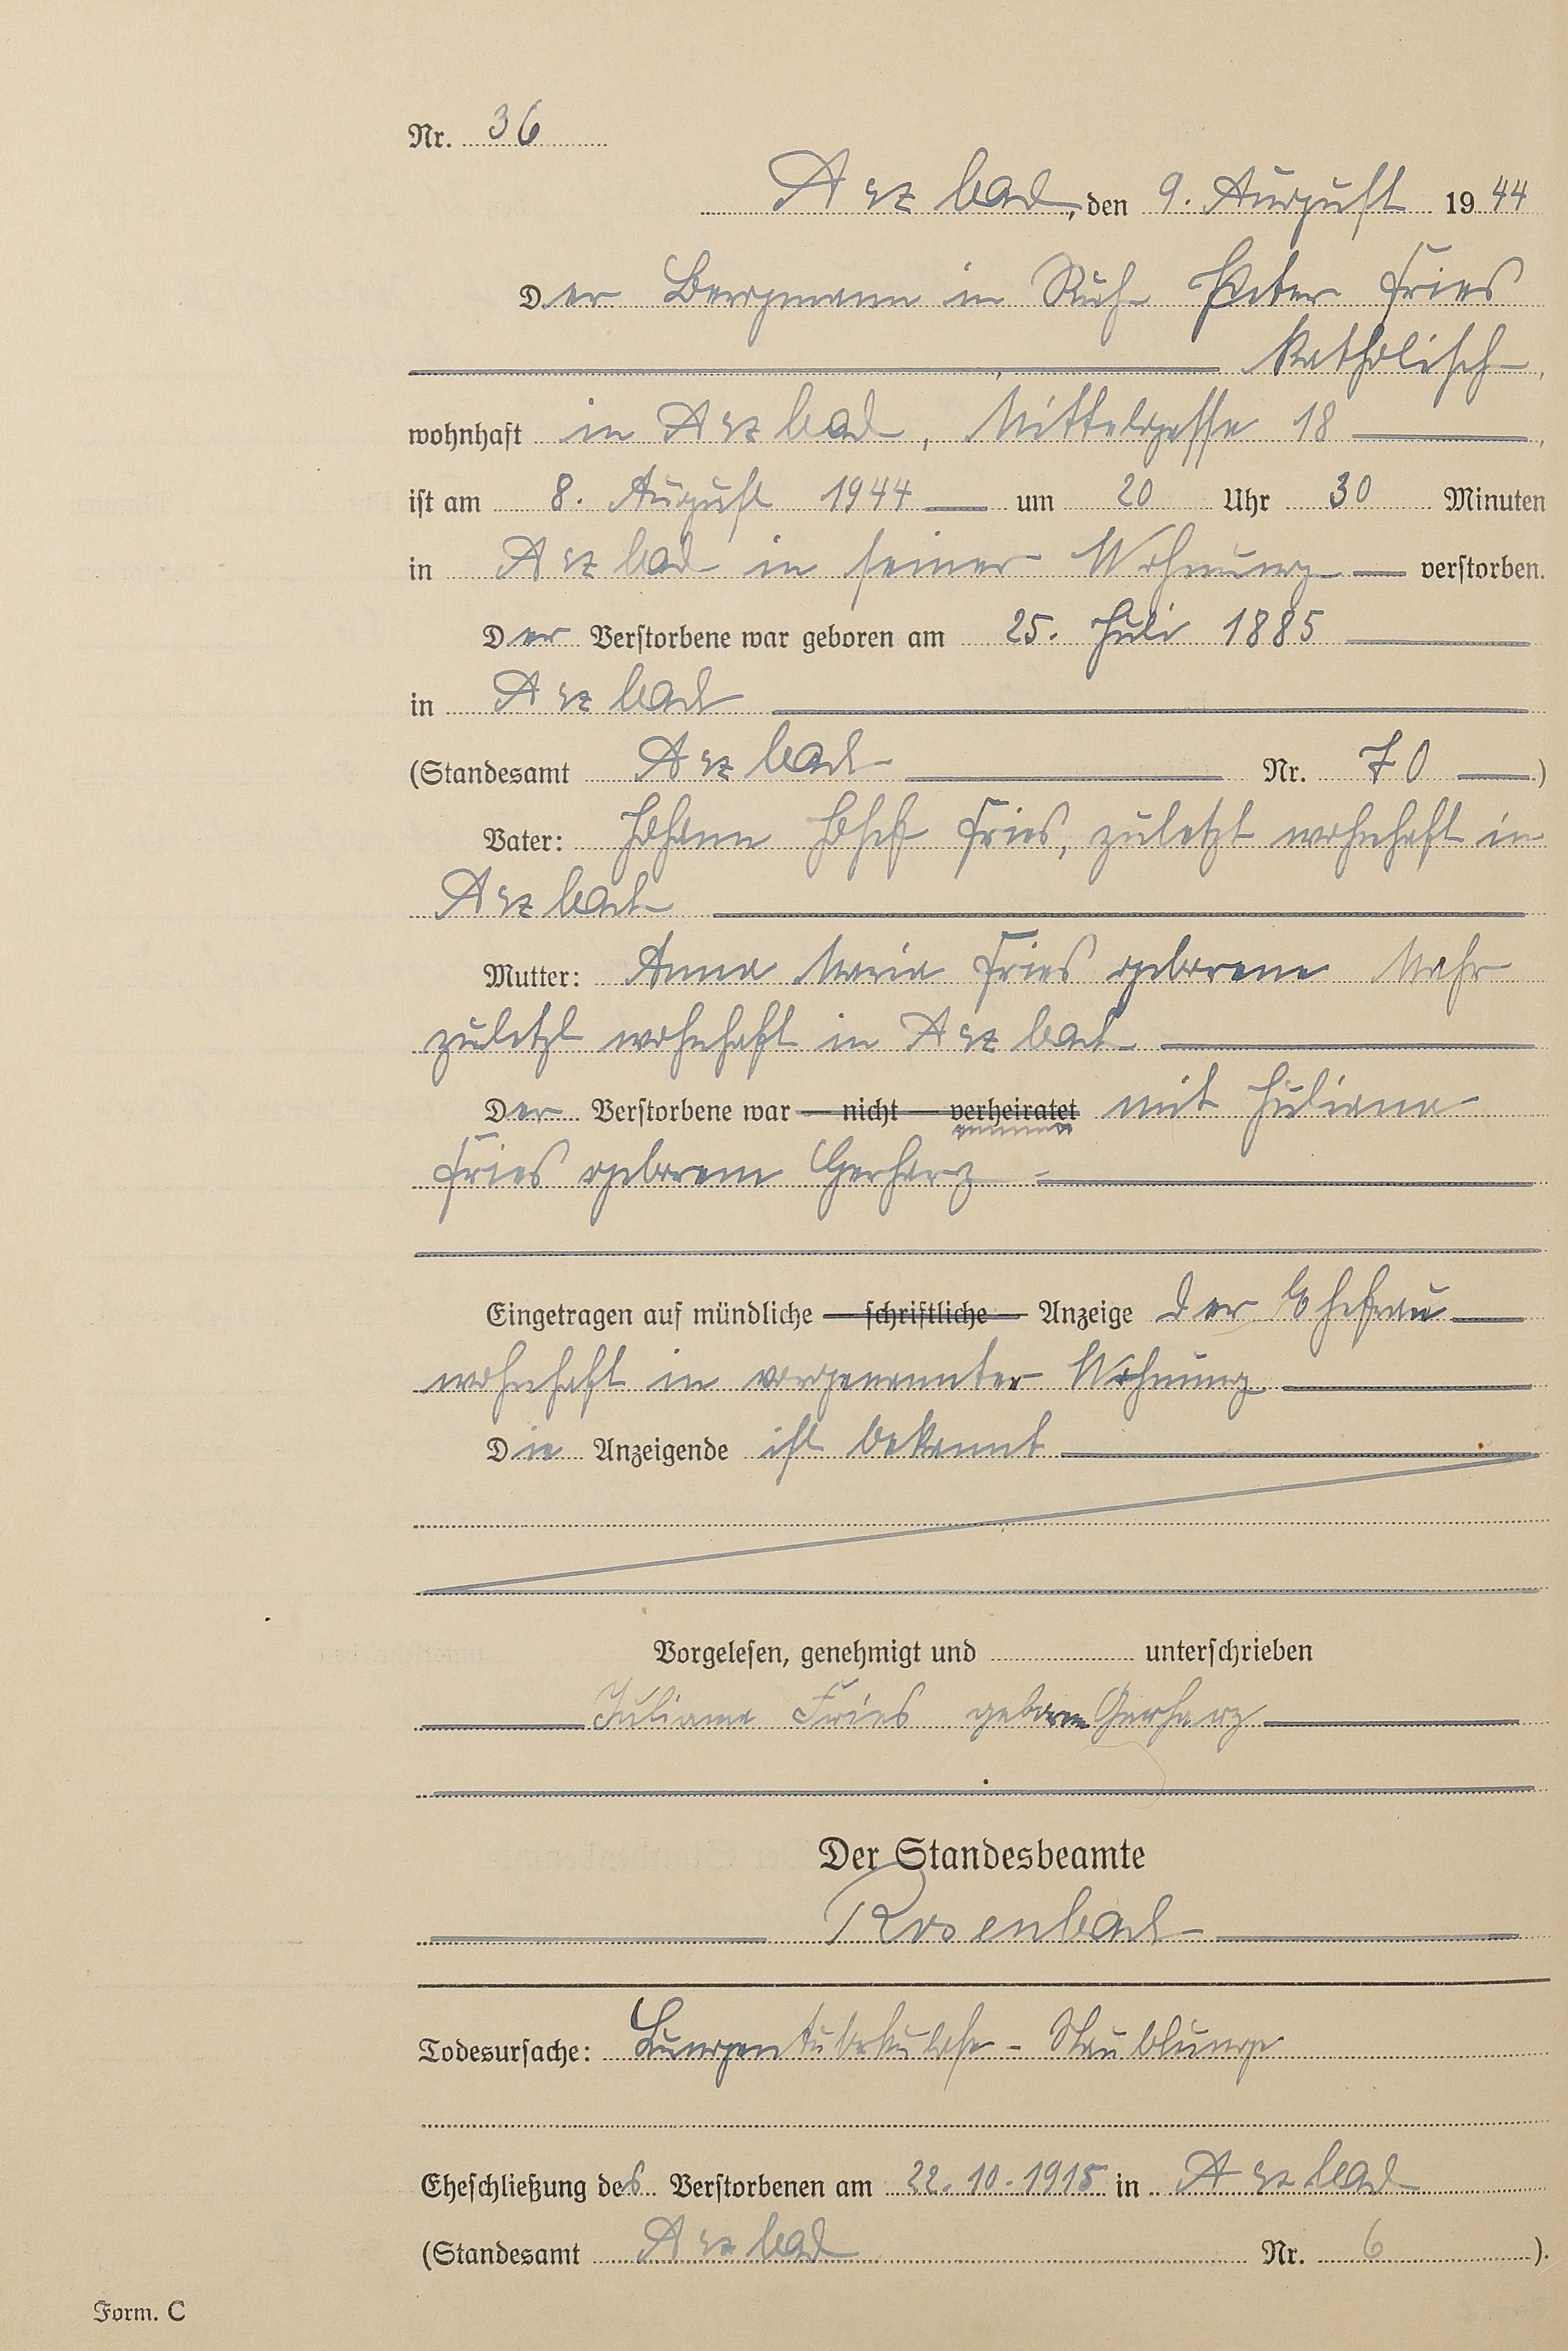 Nr. 36
Arzbach, den 9. August 1944
Der Bergmann in Ruhe Peter Fries
katholisch,
wohnhaft in Arzbach, Mittelgasse 18,
ist am 8. August 1944 um 20 Uhr 30 Minuten
in Arzbach in seiner Wohnung verstorben.
Der Verstorbene war geboren am 25. Juli 1885
in Arzbach
(Standesamt Arzbach Nr. 70)
Vater: Johann Josef Fries, zuletzt wohnhaft in
Arzbach
Mutter: Anna Maria Fries geborene Mahr
zuletzt wohnhaft in Arzbach
Der Verstorbene war — nicht — verheiratet mit Juliana
Fries geborene Gerharz
Eingetragen auf mündliche — schriftliche — Anzeige der Ehefrau
wohnhaft in vorgenannter Wohnung
Die Anzeigende ist bekannt
Vorgelesen, genehmigt und unterschrieben
Juliana Fries geborene Gerharz
Der Standesbeamte
Rosenbach
Todesursache: Lungentuberkulose - Staublunge
Eheschließung des Verstorbenen am 22.10.1915 in Arzbach
(Standesamt Arzbach Nr. 6).
Form. C